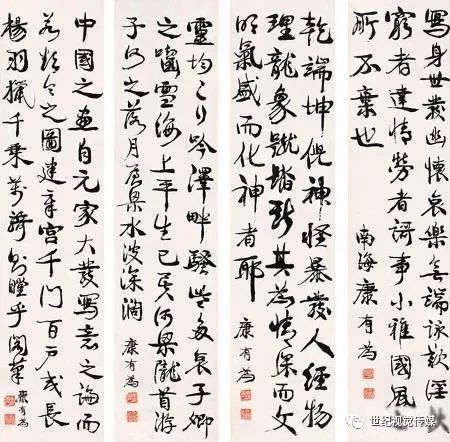 寫身世發幽懷哀樂無端詠歎淫泆
窮者達情勞者謌事小雅國風
所不棄也
南海康有為
乾端坤倪神怪暴發人經物
理龍象蹴踏斯其為情深而文
明氣盛而化神者耶
康有為
靈均之行吟澤畔騷些多哀子卿
之嚙雪海上平生已矣河梁隴首游
子何之落月屋梁水波深濶
康有為
中國之畫自元家大發寫意之論而
若欲令之圖建章宮千門百戶或長
楊羽獵千乘萬騎則瞠乎閣筆
康有為
世纪视觉传媒